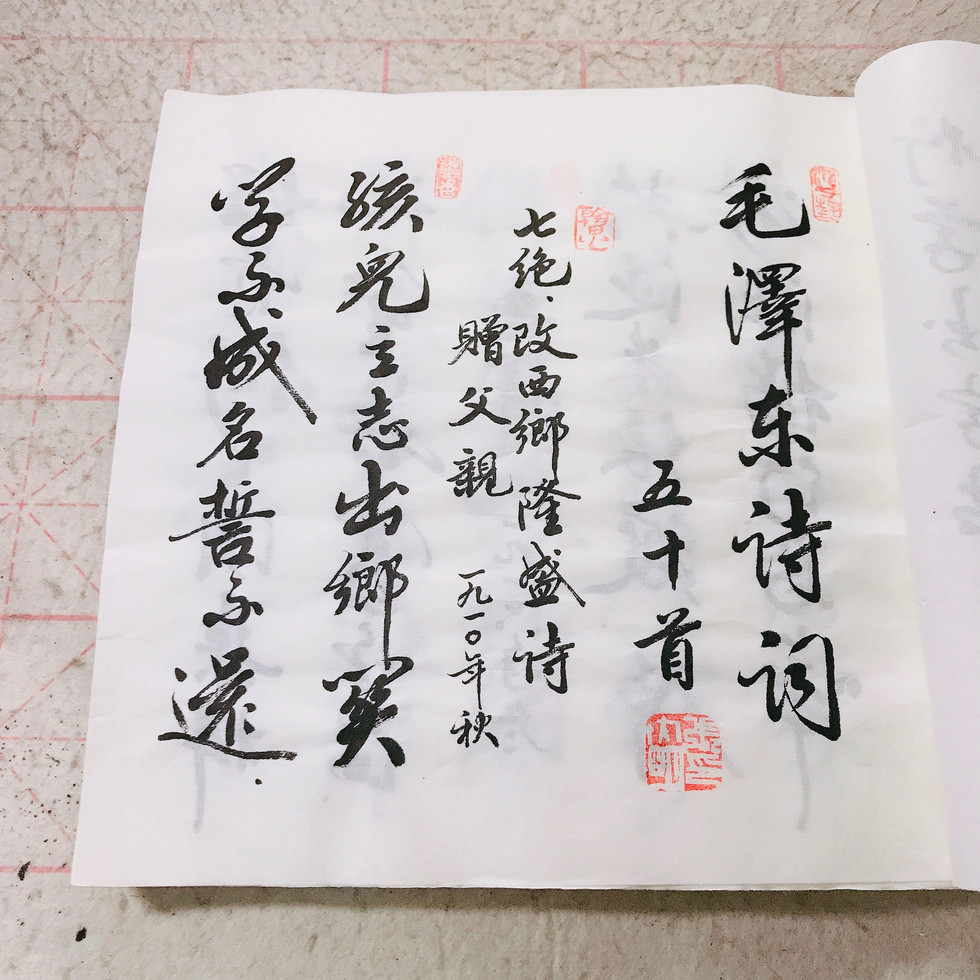 毛澤东诗词
五十首
七绝·改西鄉隆盛诗
贈父親 一九一〇年秋
孩兒立志出鄉関
学不成名誓不還.